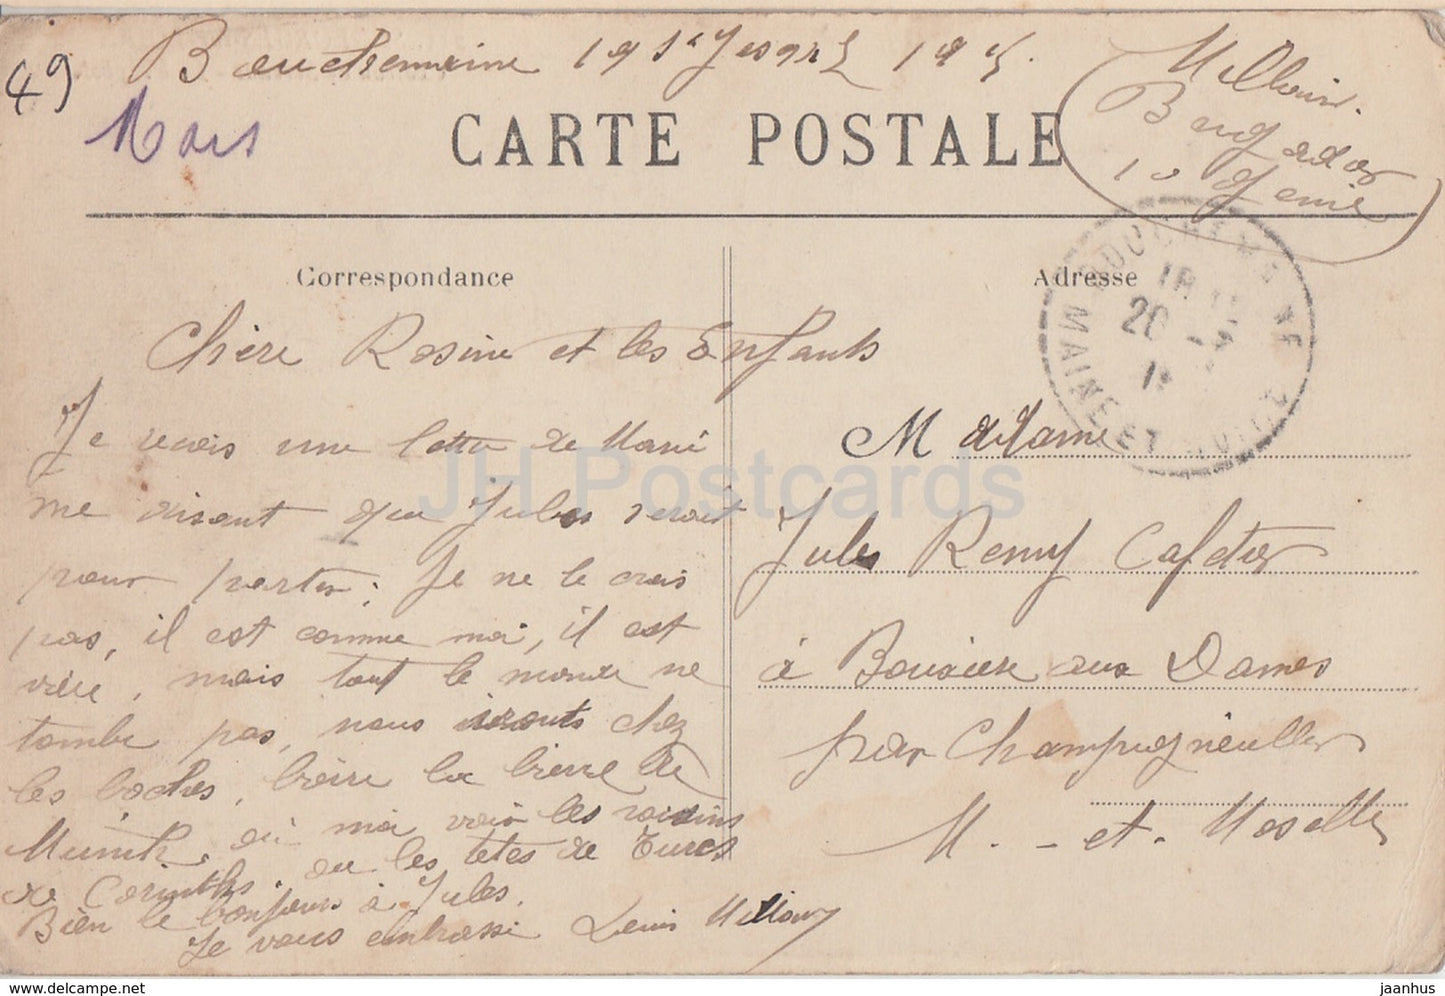 49
Bouchemaine 1915
Mars
CARTE POSTALE
10 Genie
Correspondance
Adresse
BOUCHEMAINE
MAINE ET
Chère Rosine et les Enfants
Je reçois une lettre de
me disant que Jules serait
pour partir. Je ne le crois
pas, il est comme moi, il est
mais tout le monde ne
tombe pas, nous irouts chez
les boches, boire la bierre de
Munich, ou moi voir les raisins
de Corinthe, ou les têtes de Turcs
Bien le bonjour à Jules.
Je vous embrasse Louis
Madame
Jules Remy Cafetier
à Bouxière aux Dames
par Champigneulles
M.-et-Moselle
JH Postcards
www.delcampe.net
jaanhus